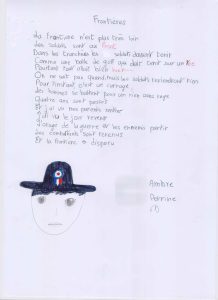 Frontières
La frontière n'est plus très loin
des soldats sont au front
Dans les tranchées les soldats doivent tenir
Comme une balle de golf qui doit tenir sur un tee
Pourtant tout était bien hier
On ne sait pas quand mais les soldats reviendront
Pour l'instant c'est un carnage
des hommes se battent pour un rien avec rage
Quatre ans sont passés
Et j'ai vu mes parents
J'ai vu le jour revenir
la guerre et les ennemis partir
des combattants sont revenus
Et la frontière a disparu
Ambre
Perrine